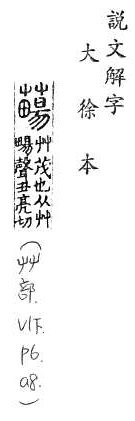 說文解字
大徐本
艸茂也从艸
畼聲丑亮切
(艸部. V1下. P6. a8.)